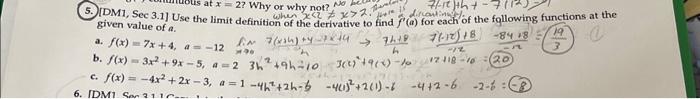 at x = 2? Why or why not? No
when x<2 ≠ x>2,
7(-12)+h+ -7(12)
5. [DM1, Sec 3.1] Use the limit definition of the derivative to find f'(a) for each of the following functions at the
given value of a.
a. f(x) = 7x + 4, a = -12 7(x+h)+4-7x+4 → 7h+8 / h 7(-12)+8 / -12 -84+8 / -12 = 19/3
b. f(x) = 3x² + 9x - 5, a = 2 3h²+9h-10 3(2)²+9(2)-10 12+18-10 = 20
c. f(x) = -4x² + 2x - 3, a = 1 -4h²+2h-6 -4(1)²+2(1)-6 -4+2-6 -2-6 = -8
6. [DM1 Sec 3.1]